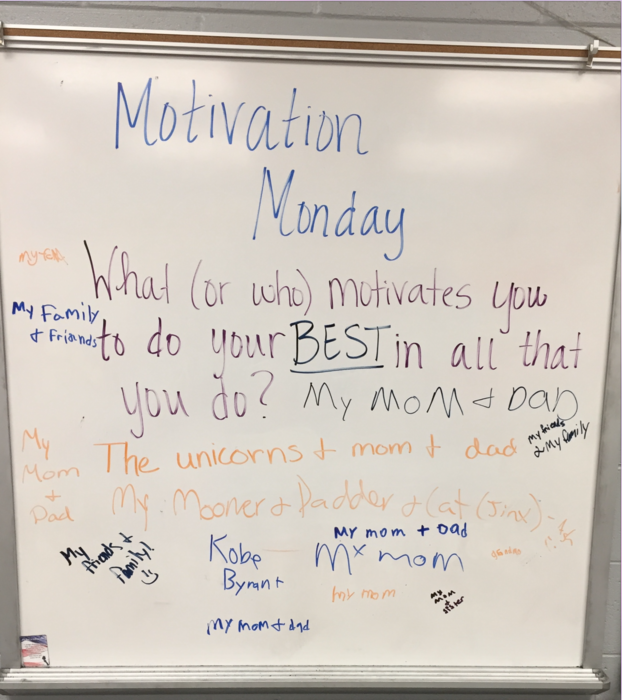 Motivation
Monday
What (or who) motivates you
My Family
+ Friends
to do your BEST in all that
you do? My MoM + DaD
my friends
& My family
My
Mom
+
Dad
The unicorns + mom + dad
My Mooner + Dadder + Cat (Jinx)
My
friends +
family!
Kobe
Byrant
My mom + Dad
Mx mom
my mom
My
mom
+
sister
My mom + dad